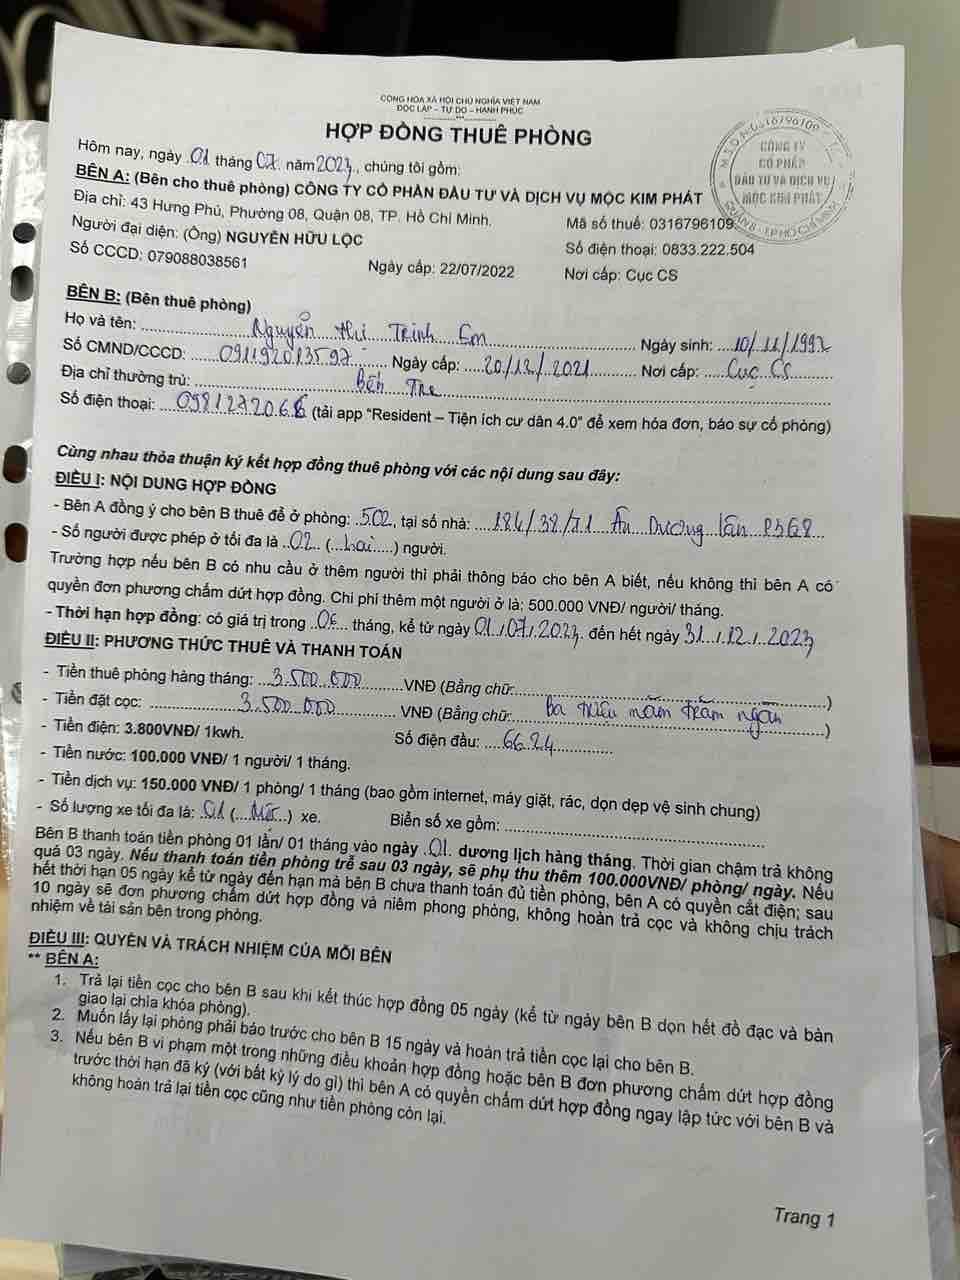 CỘNG HÒA XÃ HỘI CHỦ NGHĨA VIỆT NAM
ĐỘC LẬP – TỰ DO – HẠNH PHÚC
HỢP ĐỒNG THUÊ PHÒNG
M.S.D.N: 0316796109
CÔNG TY
CỔ PHẦN
ĐẦU TƯ VÀ DỊCH VỤ
MỘC KIM PHÁT
QUẬN 8 - T.P HỒ CHÍ MINH
Hôm nay, ngày 01 tháng 07 năm 2023, chúng tôi gồm:
BÊN A: (Bên cho thuê phòng) CÔNG TY CỔ PHẦN ĐẦU TƯ VÀ DỊCH VỤ MỘC KIM PHÁT
Địa chỉ: 43 Hưng Phú, Phường 08, Quận 08, TP. Hồ Chí Minh. Mã số thuế: 0316796109
Người đại diện: (Ông) NGUYỄN HỮU LỘC Số điện thoại: 0833.222.504
Số CCCD: 079088038561 Ngày cấp: 22/07/2022 Nơi cấp: Cục CS
BÊN B: (Bên thuê phòng)
Họ và tên: Nguyễn Thị Trinh Em Ngày sinh: 10/11/1992
Số CMND/CCCD: 091192013597 Ngày cấp: 20/12/2021 Nơi cấp: Cục CS
Địa chỉ thường trú: Bến Tre
Số điện thoại: (tải app “Resident – Tiện ích cư dân 4.0” để xem hóa đơn, báo sự cố phòng)
Cùng nhau thỏa thuận ký kết hợp đồng thuê phòng với các nội dung sau đây:
ĐIỀU I: NỘI DUNG HỢP ĐỒNG
- Bên A đồng ý cho bên B thuê để ở phòng: 502, tại số nhà: 184/38/71 Âu Dương Lân P3Q8
- Số người được phép ở tối đa là 02 (hai) người.
Trường hợp nếu bên B có nhu cầu ở thêm người thì phải thông báo cho bên A biết, nếu không thì bên A có
quyền đơn phương chấm dứt hợp đồng. Chi phí thêm một người ở là: 500.000 VNĐ/ người/ tháng.
- Thời hạn hợp đồng: có giá trị trong 06 tháng, kể từ ngày 01/07/2023 đến hết ngày 31/12/2023
ĐIỀU II: PHƯƠNG THỨC THUÊ VÀ THANH TOÁN
- Tiền thuê phòng hàng tháng: 3.500.000 VNĐ (Bằng chữ: )
- Tiền đặt cọc: 3.500.000 VNĐ (Bằng chữ: Ba triệu năm trăm ngàn )
- Tiền điện: 3.800VNĐ/ 1kwh. Số điện đầu: 6624
- Tiền nước: 100.000 VNĐ/ 1 người/ 1 tháng.
- Tiền dịch vụ: 150.000 VNĐ/ 1 phòng/ 1 tháng (bao gồm internet, máy giặt, rác, dọn dẹp vệ sinh chung)
- Số lượng xe tối đa là: 01 (Một) xe. Biển số xe gồm:
Bên B thanh toán tiền phòng 01 lần/ 01 tháng vào ngày 01 dương lịch hàng tháng. Thời gian chậm trả không
quá 03 ngày. Nếu thanh toán tiền phòng trễ sau 03 ngày, sẽ phụ thu thêm 100.000VNĐ/ phòng/ ngày. Nếu
hết thời hạn 05 ngày kể từ ngày đến hạn mà bên B chưa thanh toán đủ tiền phòng, bên A có quyền cắt điện; sau
10 ngày sẽ đơn phương chấm dứt hợp đồng và niêm phong phòng, không hoàn trả cọc và không chịu trách
nhiệm về tài sản bên trong phòng.
ĐIỀU III: QUYỀN VÀ TRÁCH NHIỆM CỦA MỖI BÊN
** BÊN A:
1. Trả lại tiền cọc cho bên B sau khi kết thúc hợp đồng 05 ngày (kể từ ngày bên B dọn hết đồ đạc và bàn
giao lại chìa khóa phòng).
2. Muốn lấy lại phòng phải báo trước cho bên B 15 ngày và hoàn trả tiền cọc lại cho bên B.
3. Nếu bên B vi phạm một trong những điều khoản hợp đồng hoặc bên B đơn phương chấm dứt hợp đồng
trước thời hạn đã ký (với bất kỳ lý do gì) thì bên A có quyền chấm dứt hợp đồng ngay lập tức với bên B và
không hoàn trả lại tiền cọc cũng như tiền phòng còn lại.
Trang 1